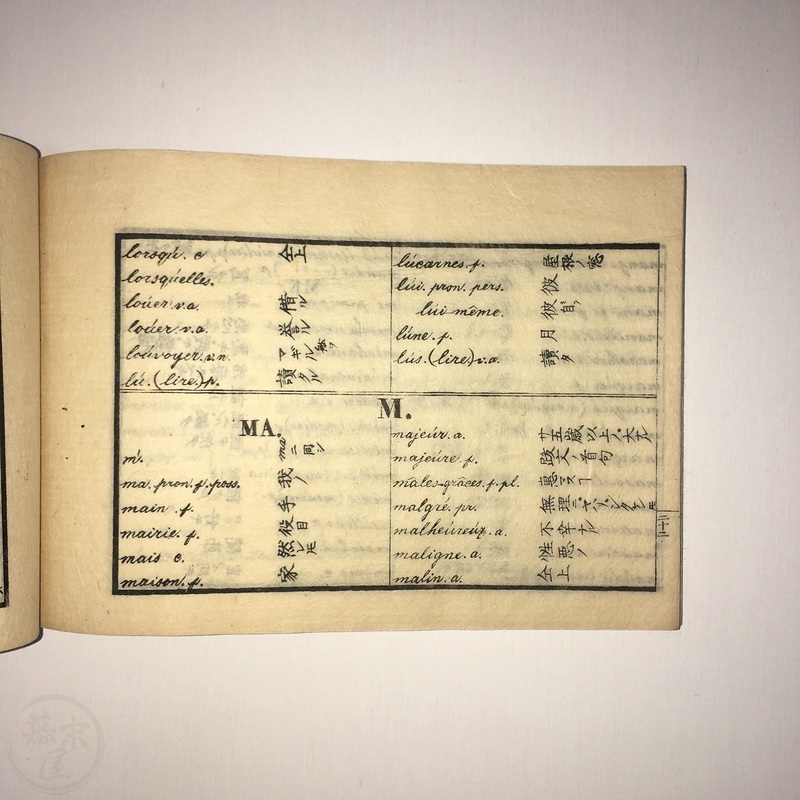 lorsqú. c 仝上
lorsqúelles.
loúer. v.a. 借ル
loúer. v.a. 誉ル
loúvoyer. v.n. マギル
lú. (lire.) p. 讀タル
lúcarnes. f. 屋根ノ窓
lúi. pron. pers. 彼
lúi-même. 彼自ラ
lúne. f. 月
lús. (lire) v.a. 讀タ
M.
MA.
m'. ma ニ同シ
ma. pron. f. poss. 我ノ
main. f. 手
mairie. f. 役目
mais c. 然レ𪜈
maison. f. 家
majeúr. a. 廿五歳以上ノ・大ナル
majeúre. f. 跋文ノ首句
males-grâces. f. pl. 悪マスヿ
malgré. pr. 無理ニ
malheúreúx. a. 不幸ナル
maligne. a. 性悪ノ
malin. a. 仝上